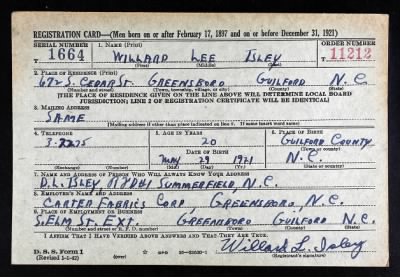 REGISTRATION CARD—(Men born on or after February 17, 1897 and on or before December 31, 1921)
SERIAL NUMBER 1. NAME (Print) ORDER NUMBER
T 1664 WILLARD LEE ISLEY T 11212
(First) (Middle) (Last)
2. PLACE OF RESIDENCE (Print)
S. CEDAR ST. GREENSBORO GUILFORD N.C.
(Number and street) (Town, township, village, or city) (County) (State)
[THE PLACE OF RESIDENCE GIVEN ON THE LINE ABOVE WILL DETERMINE LOCAL BOARD
JURISDICTION; LINE 2 OF REGISTRATION CERTIFICATE WILL BE IDENTICAL]
3. MAILING ADDRESS
SAME
[Mailing address if other than place indicated on line 2. If same insert word same]
4. TELEPHONE 5. AGE IN YEARS 6. PLACE OF BIRTH
3-2275 20 GUILFORD COUNTY
DATE OF BIRTH (Town or county)
MAY 29 1921 N.C.
(Exchange) (Number) (Mo.) (Day) (Yr.) (State or country)
7. NAME AND ADDRESS OF PERSON WHO WILL ALWAYS KNOW YOUR ADDRESS
D.L. ISLEY SUMMERFIELD, N.C.
8. EMPLOYER'S NAME AND ADDRESS
CARTER FABRICS CORP GREENSBORO, N.C.
9. PLACE OF EMPLOYMENT OR BUSINESS
S. ELM ST. EXT. GREENSBORO GUILFORD N.C.
(Number and street or R. F. D. number) (Town) (County) (State)
I AFFIRM THAT I HAVE VERIFIED ABOVE ANSWERS AND THAT THEY ARE TRUE.
D. S. S. Form 1 Willard L. Isley
(Revised 1-1-42) (over) GPO (Registrant's signature)